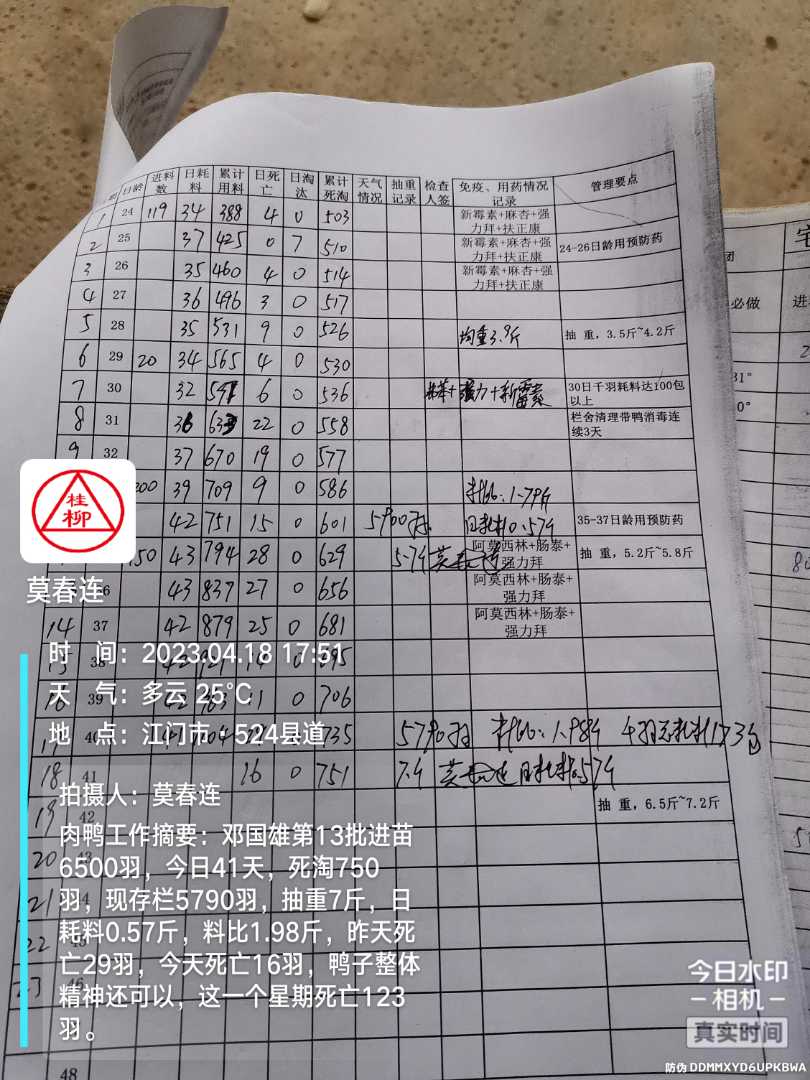 日龄 进料数 日耗料 累计用料 日死亡 日淘汰 累计死淘 天气情况 抽重记录 检查人签 免疫、用药情况记录 管理要点
1 24 119 34 388 4 0 503 新霉素+麻杏+强力拜+扶正康
2 25 37 425 0 7 510 新霉素+麻杏+强力拜+扶正康 24-26日龄用预防药
3 26 35 460 4 0 514 新霉素+麻杏+强力拜+扶正康
4 27 36 496 3 0 517
5 28 35 531 9 0 526 均重3.9斤 抽重，3.5斤~4.2斤
6 29 20 34 565 4 0 530
7 30 32 597 6 0 536 +强力+新霉素 30日千羽耗料达100包以上
8 31 36 633 22 0 558 栏舍清理带鸭消毒连续3天
9 32 37 670 19 0 577
200 39 709 9 0 586 料比：1.79斤
42 751 15 0 601 5900羽 日耗料0.57斤 35-37日龄用预防药
150 43 794 28 0 629 5.7斤 莫春连 阿莫西林+肠泰+强力拜 抽重，5.2斤~5.8斤
43 837 27 0 656 阿莫西林+肠泰+强力拜
14 37 42 879 25 0 681 阿莫西林+肠泰+强力拜
38 0 695
39 0 706
40 735 5790羽 料比：1.98斤
18 41 16 0 751 7斤 莫春连 日耗料0.57斤
19 42 抽重，6.5斤~7.2斤
20 43
21
22
23 46
48
必做
桂柳
莫春连
时 间：2023.04.18 17:51
天 气：多云 25℃
地 点：江门市·524县道
拍摄人：莫春连
肉鸭工作摘要：邓国雄第13批进苗
6500羽，今日41天，死淘750
羽，现存栏5790羽，抽重7斤，日
耗料0.57斤，料比1.98斤，昨天死
亡29羽，今天死亡16羽，鸭子整体
精神还可以，这一个星期死亡123
羽。
今日水印
-相机-
真实时间
防伪 DDMMXYD6UPKBWA